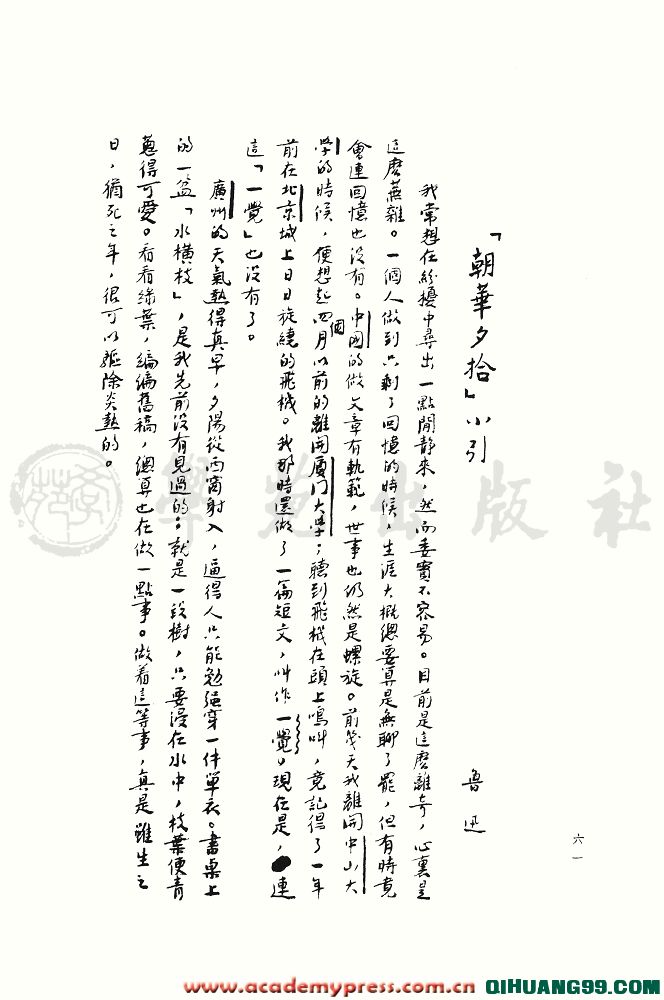 「朝華夕拾」小引
魯迅
六一
我常想在紛擾中尋出一點閒靜來,然而委實不容易。目前是這麽離奇,心裏是
這麽蕪雜。一個人做到只剩了回憶的時候,生涯大概總要算是無聊了罷,但有時竟
會連回憶也沒有。中國的做文章有軌範,世事也仍然是螺旋。前幾天我離開中山大
學的時候,便想起四個月以前的離開厦门大學;聽到飛機在頭上鳴叫,竟記得了一年
前在北京城上日日旋繞的飛機。我那時還做了一篇短文,叫作一覺。現在是,連
這「一覺」也沒有了。
廣州的天氣熱得真早,夕陽從西窗射入,逼得人只能勉强穿一件單衣。書桌上
的一盆「水横枝」,是我先前沒有見過的:就是一段樹,只要浸在水中,枝葉便青
蔥得可愛。看看綠葉,編編舊稿,總算也在做一點事。做着這等事,真是雖生之
日,猶死之年,很可以驅除炎熱的。
學苑出版社
www.academypress.com.cn
QIHUANG99.COM